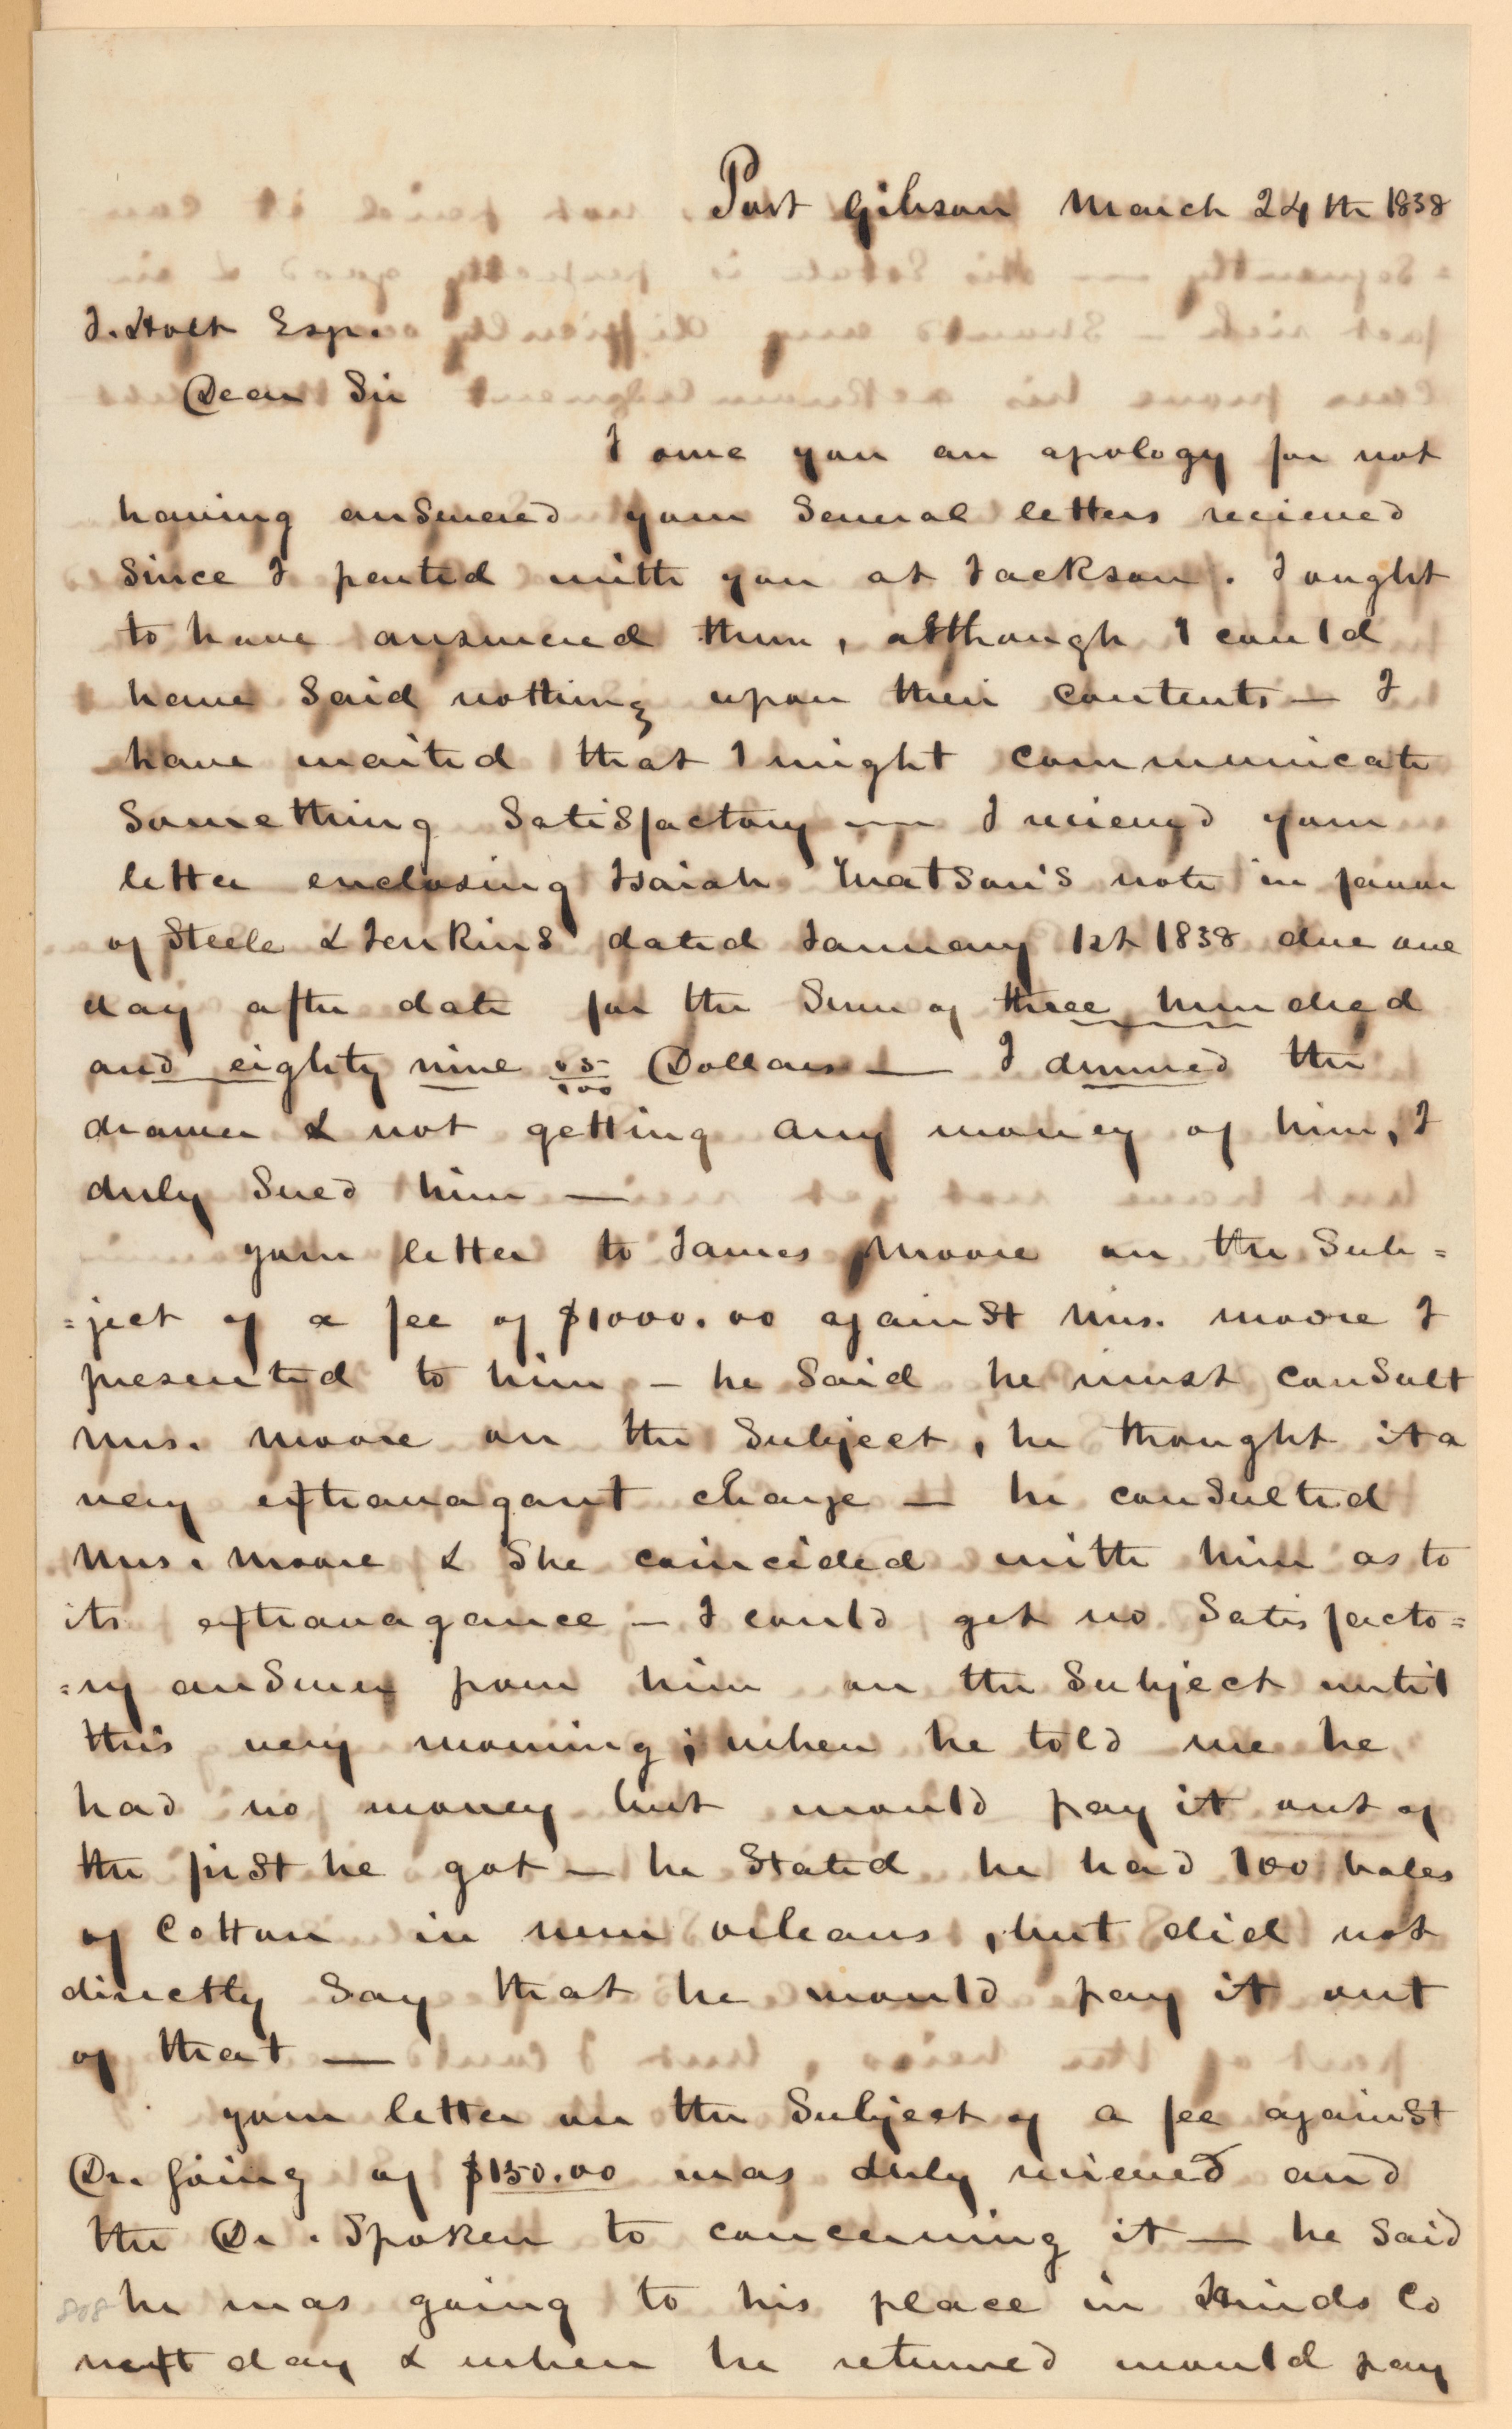 Port Gibson March 24th 1838
J. Holt Esqr.
Dear Sir
I owe you an apology for not
having answered your several letters recieved
since I parted with you at Jackson. I ought
to have answered them, although I could
have said nothing upon their contents — I
have waited that I might communicate
something satisfactory — I recieved your
letter enclosing Isaiah Watson's note in favor
of Steele & Jenkins dated January 1st 1838 due one
day after date for the sum of three hundred
and eighty nine 05/100 Dollars — I dunned the
drawer & not getting any money of him, I
duly sued him —
your letter to James Moore on the sub=
=ject of a fee of $1000.00 against Mrs. Moore I
presented to him — he said he must consult
Mrs. Moore on the subject, he thought it a
very extravagant charge — he consulted
Mrs. Moore & she coincided with him as to
its extravagance — I could get no satisfacto=
=ry answer from him on the subject until
this very morning; when he told me he
had no money but would pay it out of
the first he got — he stated he had 100 bales
of Cotton in new orleans, but did not
directly say that he would pay it out
of that —
your letter on the subject of a fee against
Dr. Going of $150.00 was duly recieved and
the Dr. spoken to concerning it — he said
he was going to his place in Hinds Co
next day & when he returned would pay
808